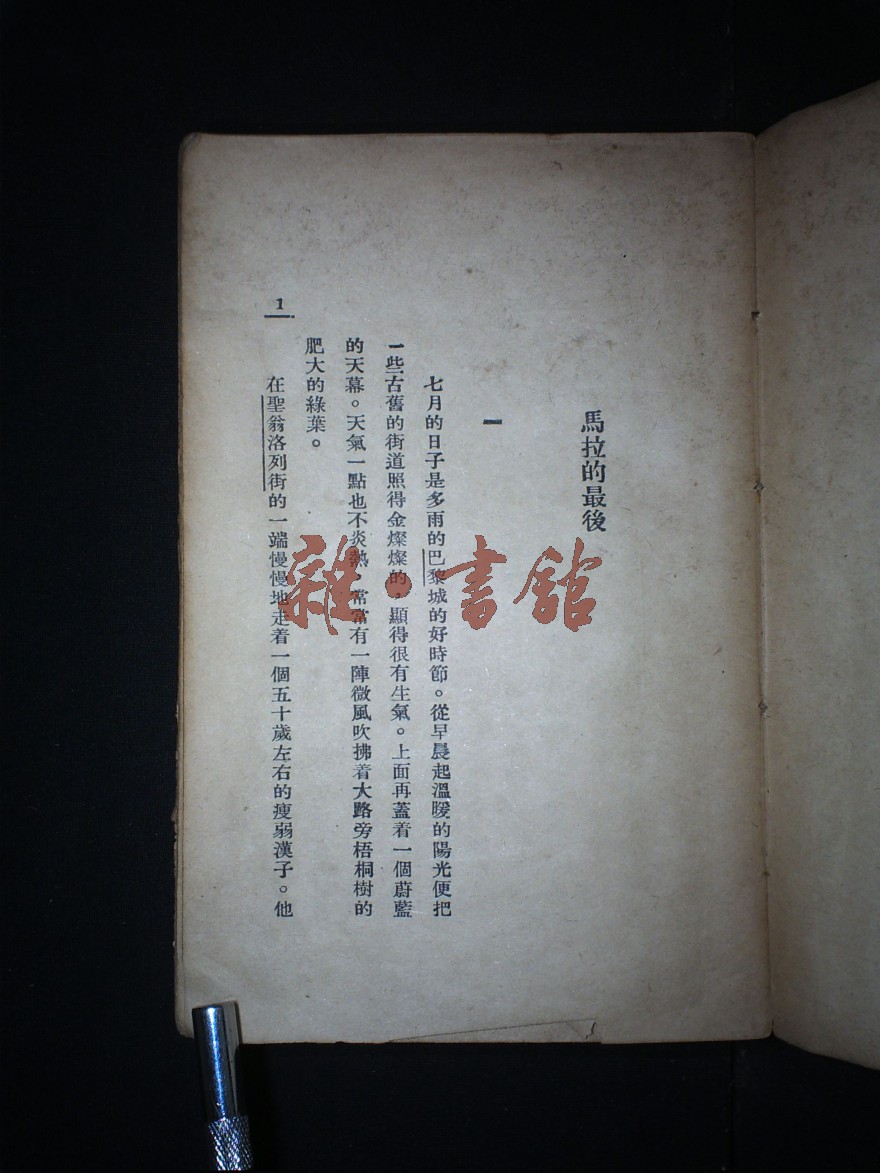 馬拉的最後
一
七月的日子是多雨的巴黎城的好時節。從早晨起溫暖的陽光便把
一些古舊的街道照得金燦燦的，顯得很有生氣。上面再蓋着一個蔚藍
的天幕。天氣一點也不炎熱，常常有一陣微風吹拂着大路旁梧桐樹的
肥大的綠葉。
在聖翁洛列街的一端慢慢地走着一個五十歲左右的瘦弱漢子。他
1
雜·書館